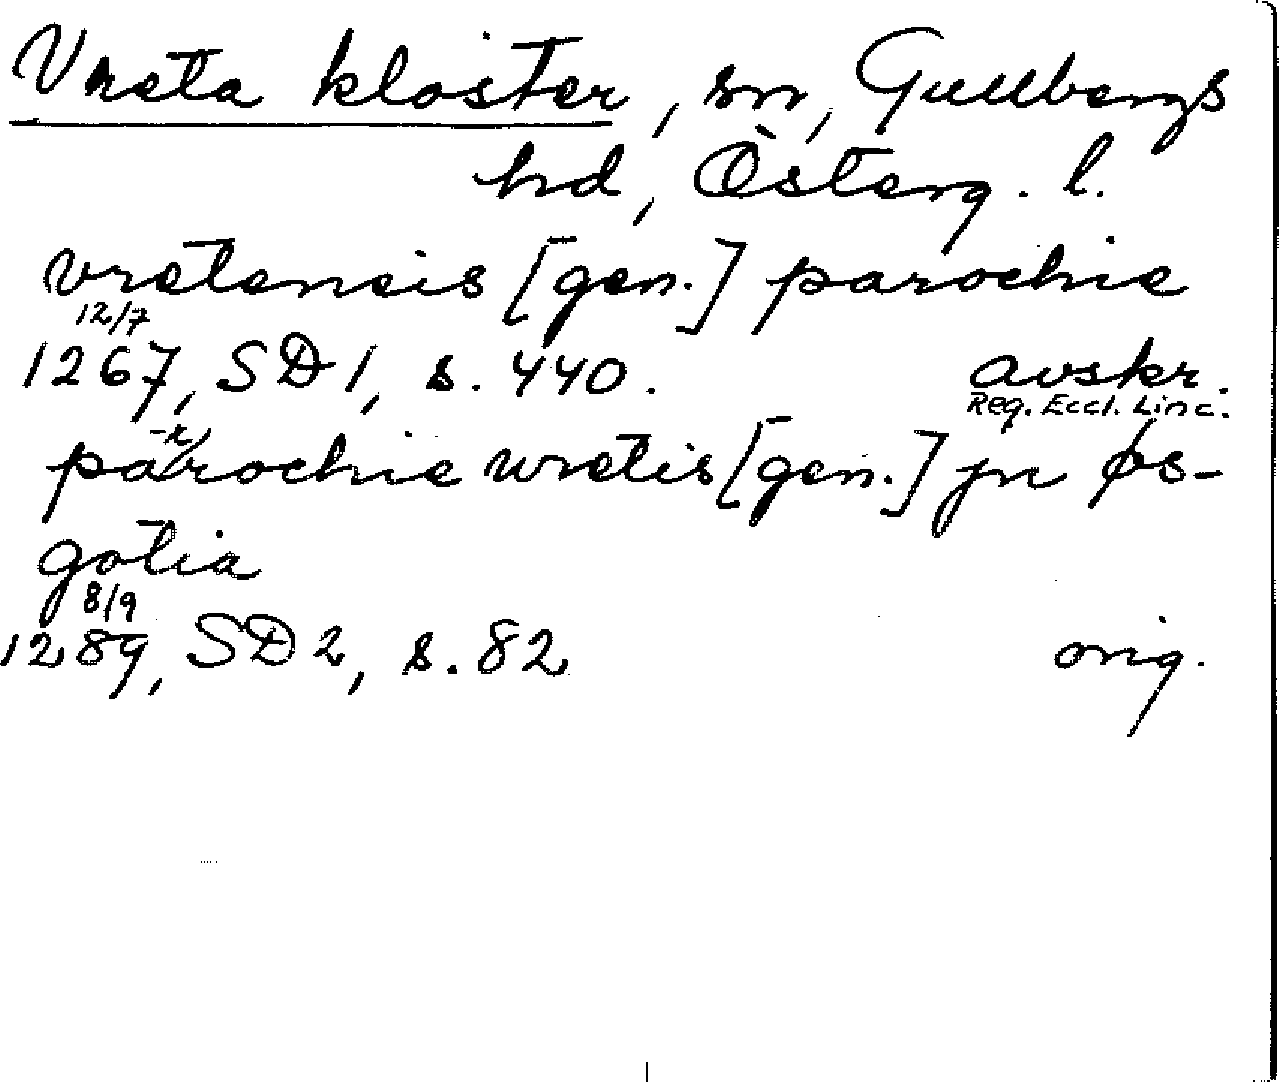 Vreta kloster, sn, Gullbergs
hd, Österg. l.
vretensis [gen.] parochie
12/7
1267, SD 1, s. 440. avskr.
Reg. Eccl. Linc.
parochie wretis [gen.] jn øs-
gotia
8/9
1289, SD 2, s. 82 orig.